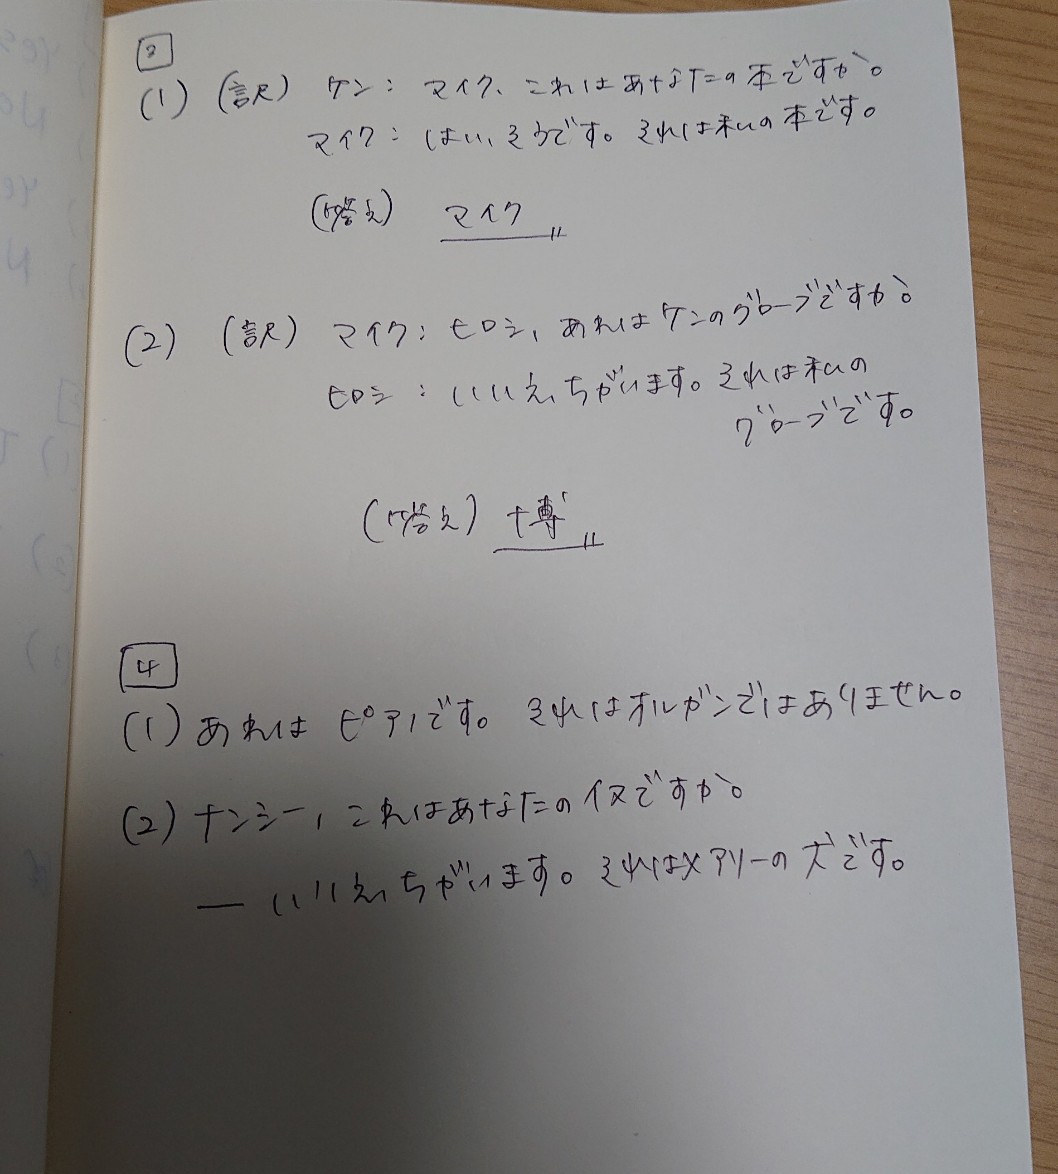 3
(1) (訳) ケン: マイク、これはあなたの本ですか。
マイク: はい、そうです。それは私の本です。
(答え) マイク
(2) (訳) マイク: ヒロシ、あれはケンのグローブですか。
ヒロシ: いいえ、ちがいます。それは私の
グローブです。
(答え) 博
4
(1) あれはピアノです。それはオルガンではありません。
(2) ナンシー、これはあなたのイヌですか。
― いいえ、ちがいます。それはメアリーの犬です。